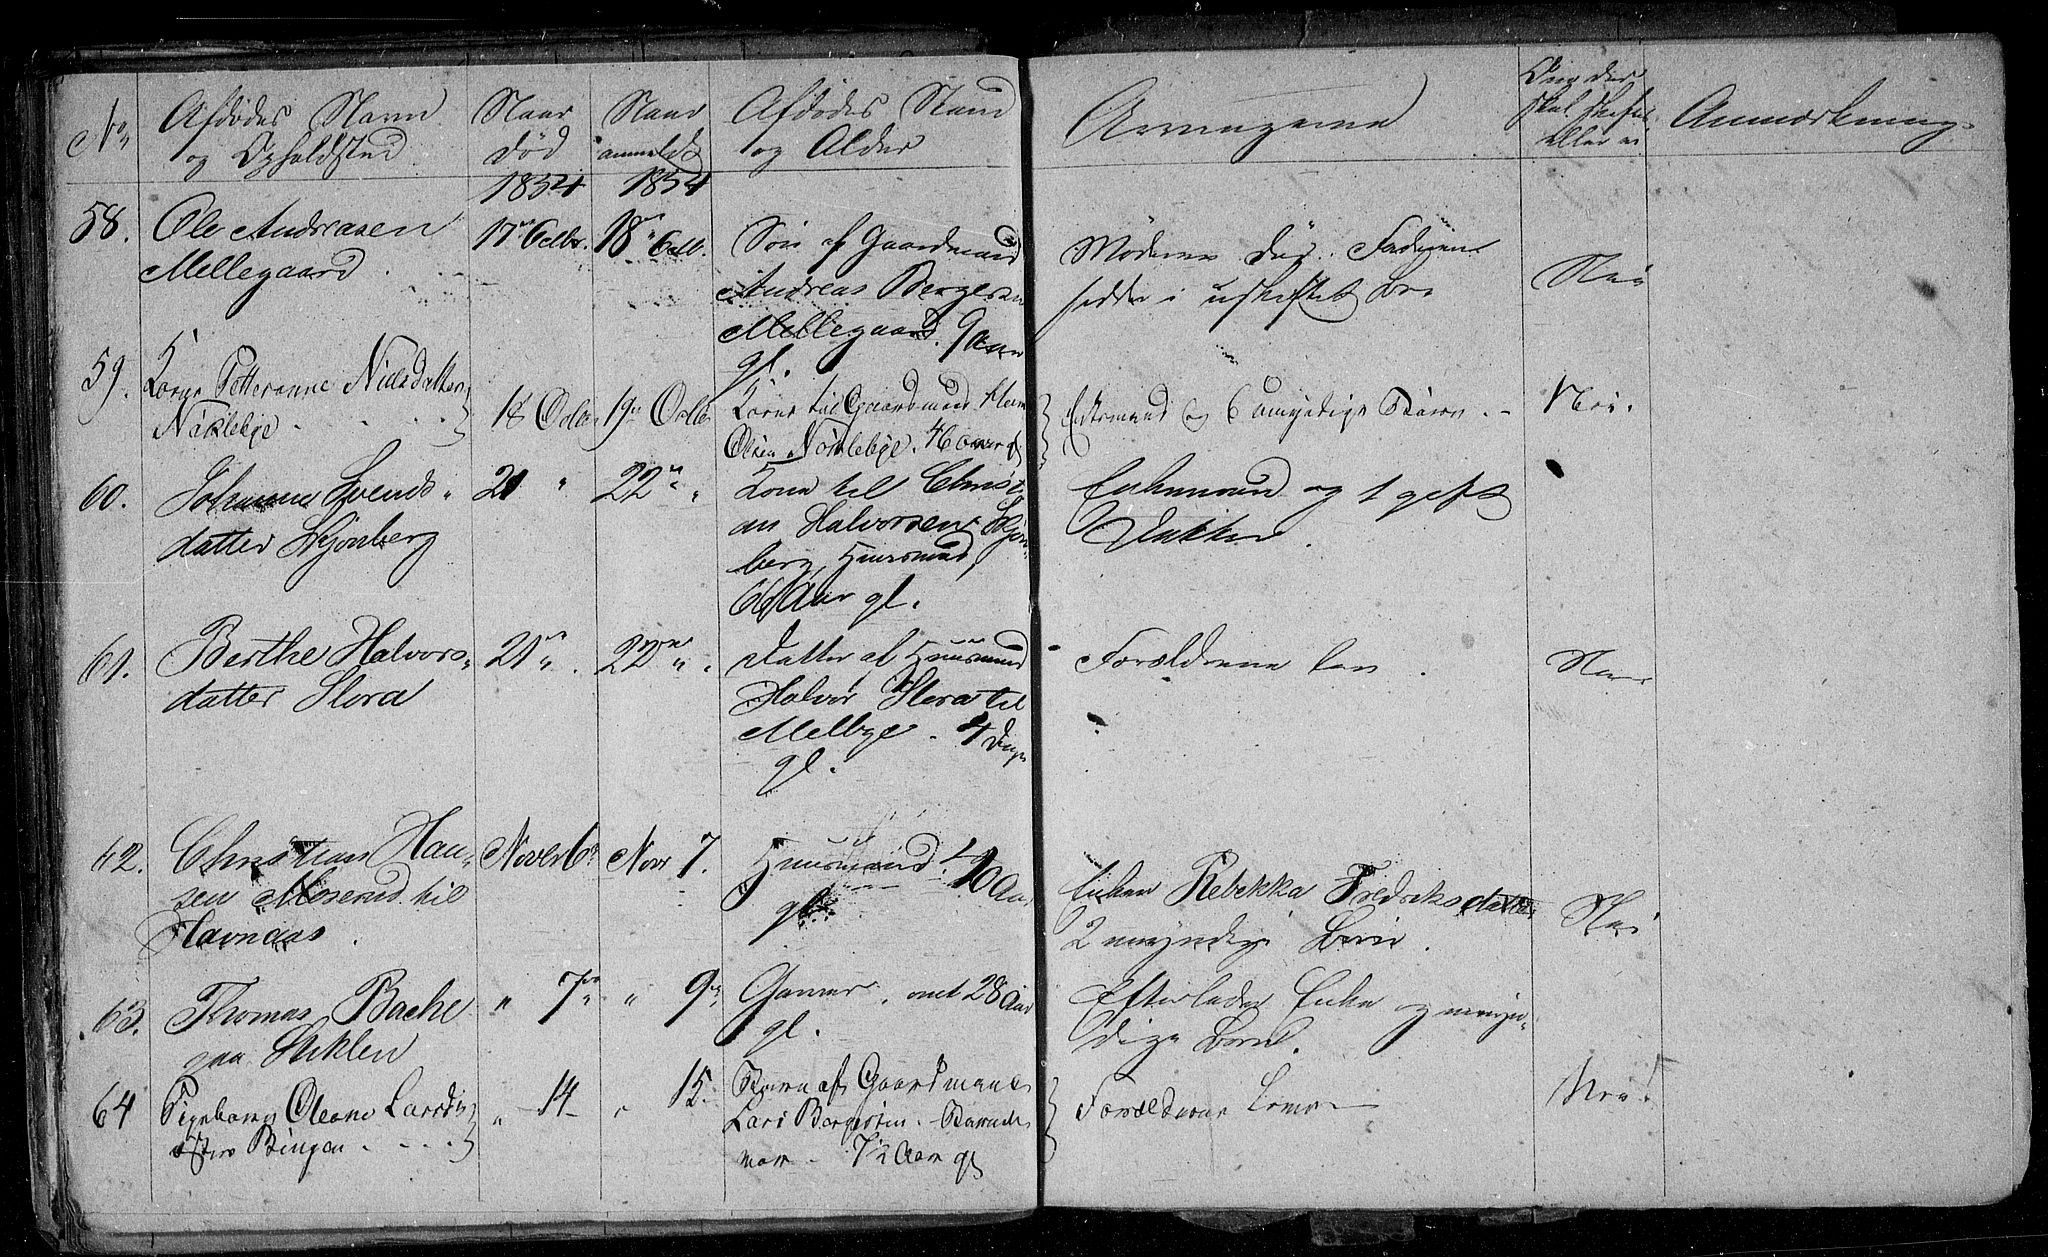 No
Afdødes Navn
og Opholdsted
Naar
død
Naar
anmeldt
Afdødes Stand
og Alder
Arvingerne
Om der
skal skiftes
eller ei
Anmærkning
1854
1854
58.
Ole Andreasen
Mellegaard
17de Octbr.
18de Octb.
Søn af Gaardmand
Andreas Bergersen
Mellegaard. 9 Aar
gl.
Moderen død. Faderen
sidder i uskiftet Bo
Nei
59.
Kone Petteranne Nielsdatter
Nøklebye
18 Octbr
19de Octbr
Kone til Gaardmand
Olsen Nøklebye. 46 aar gl
Enkemand og 6 umyndige Børn. -
Nei.
60.
Johanne Svends
datter Skjønberg
21 "
22de "
Kone til Christi
an Halvorsen Skjøn
berg, Huusmand,
66 Aar gl.
Enkemand og 1 gift
Datter.
61.
Berthe Halvors
datter Flora
21de " .
22de " .
Datter af Huusmand
Halvor Flora til
Melbye. 4 Dage
gl.
Forældrene lever .
Nei
62.
Christian Han
sen Moserud til
Havnaas .
Novbr 6te
Novr 7.
Huusmand. 40 Aar
gl.
Enken Rebekka Fredriksdatter
2 umyndige Børn.
Nei
63.
Thomas Bache
paa Stiklen
" 7de "
" 9de "
Garver, omt 28 Aar
gl.
Efterlader Enke og umyn
dige Børn.
64
Pigebarn Oleane Larsd
østre Bingen . - . -
" 14 -
" 15.
Barn af Gaardmand
Lars Bergersen -
1/2 Aar gl
Forældrene lever -
Nei!